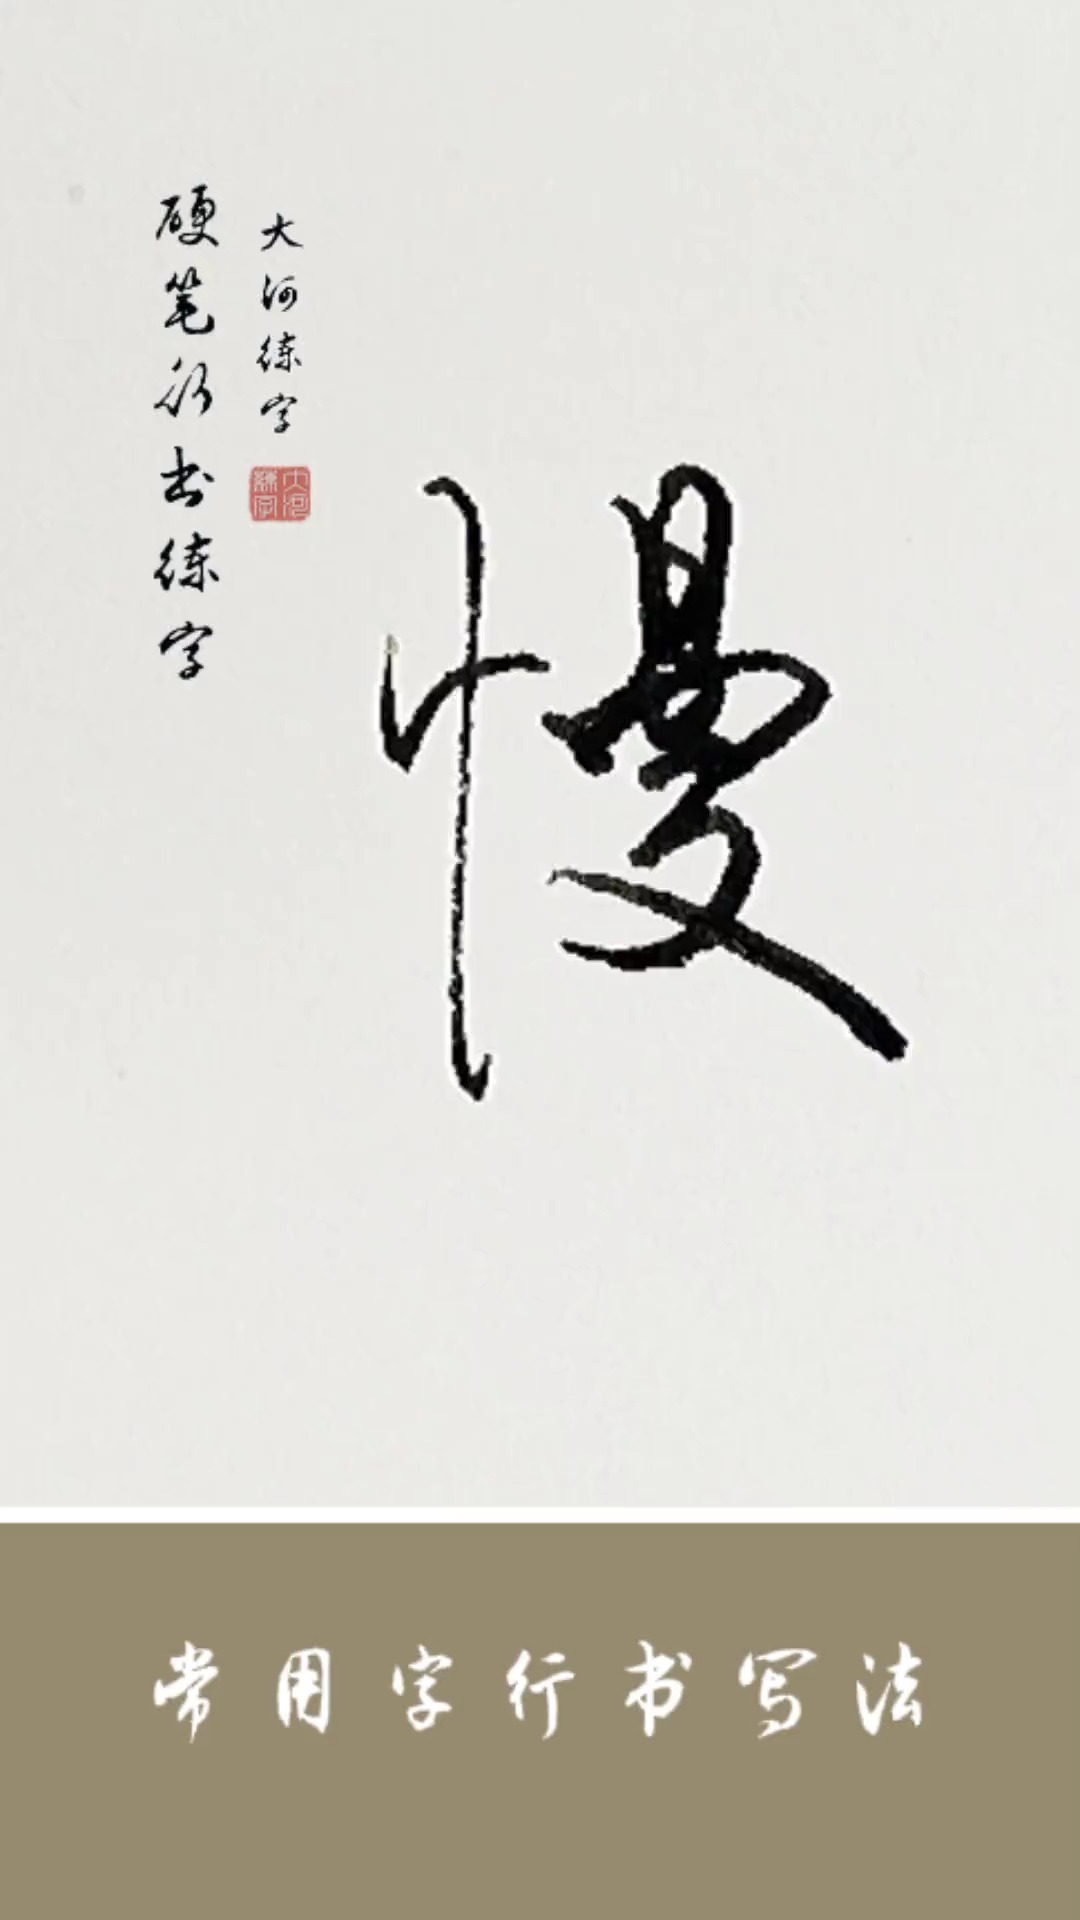 大河练字
硬笔行书练字
大河練字
慢
常用字行书写法